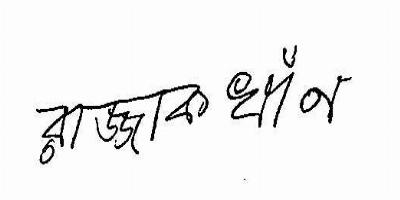 রাজ্জাক খাঁন